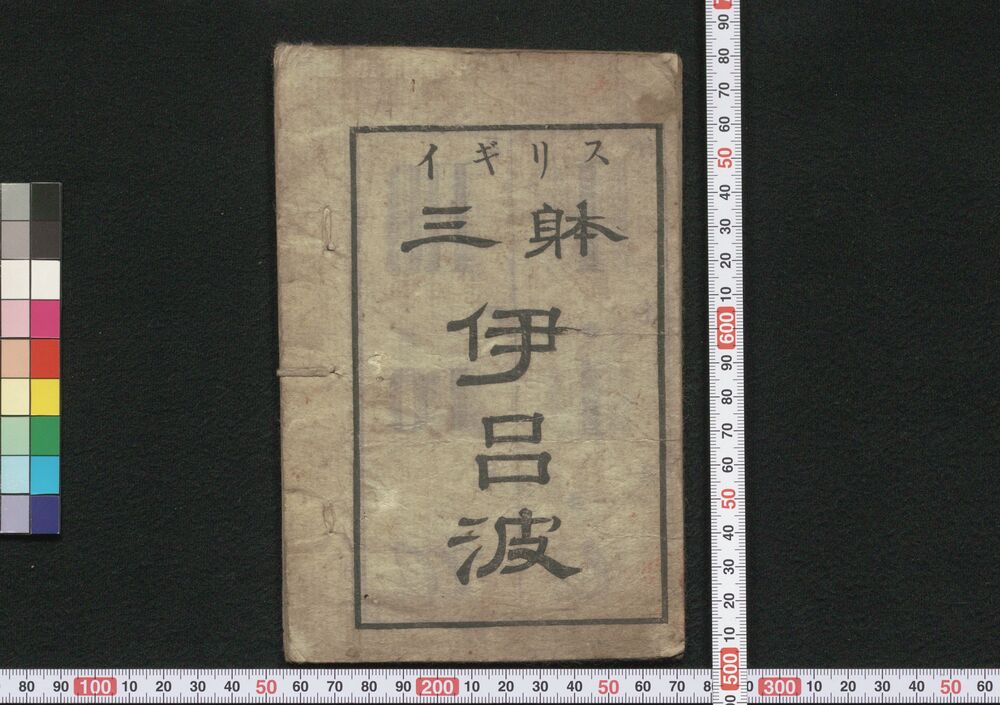 イギリス
三躰
伊呂波
90 80 70 60 50 40 30 20 10 600 90 80 70 60 50 40 30 20 10 500
80 90 100 10 20 30 40 50 60 70 80 90 200 10 20 30 40 50 60 70 300 10 20 30 40 50 60